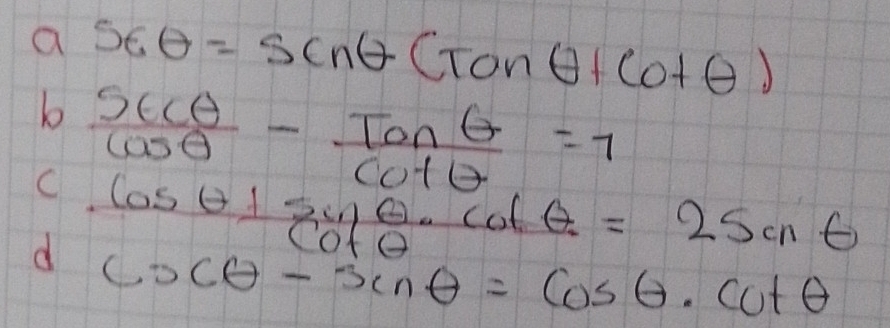 a Sec θ = Senθ (Tan θ + Cot θ)
b Secθ / Cosθ - Tan θ / Cotθ = 1
c Cos θ + Senθ . Cot θ / Cot θ = 2 Sen θ
d CscΘ - Senθ = Cos θ . Cot θ